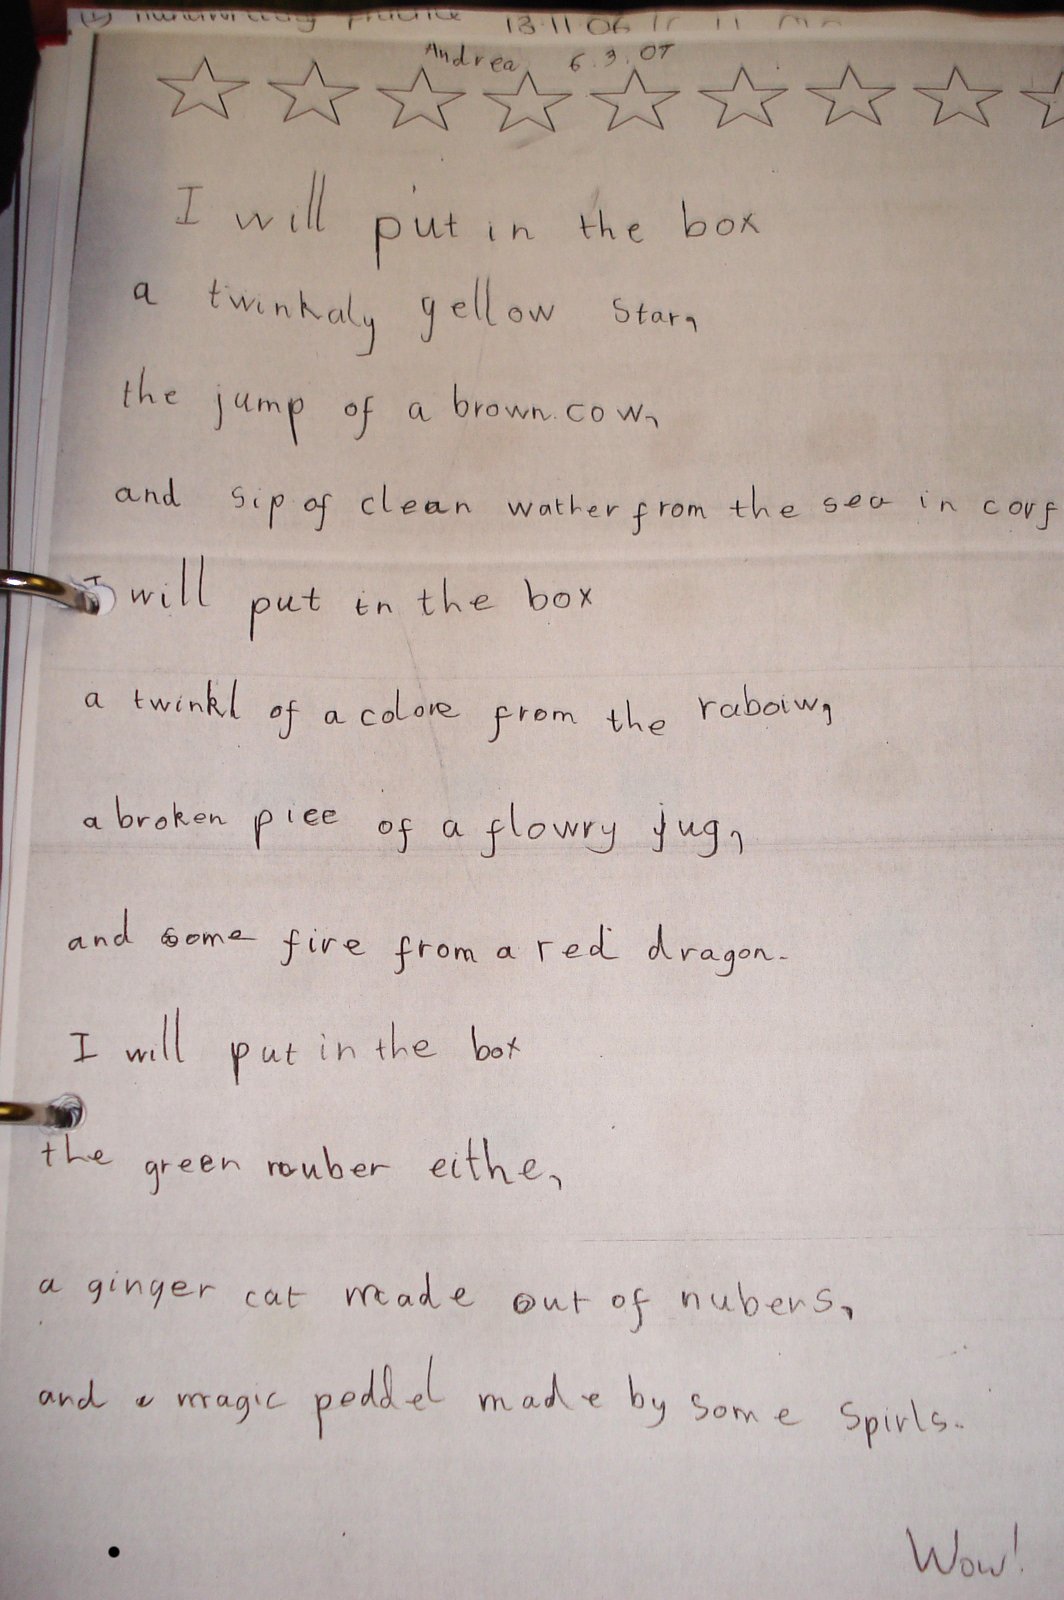 Handwriting Practice 13.11.06
Andrea 6.3.07
I will put in the box
a twinkaly yellow star,
the jump of a brown cow,
and sip of clean wather from the sea in corf
I will put in the box
a twinkl of a colore from the raboiw,
a broken piee of a flowry jug,
and some fire from a red dragon.
I will put in the box
the green rouber eithe,
a ginger cat made out of nubers,
and a magic peddel made by some spirls.
Wow!